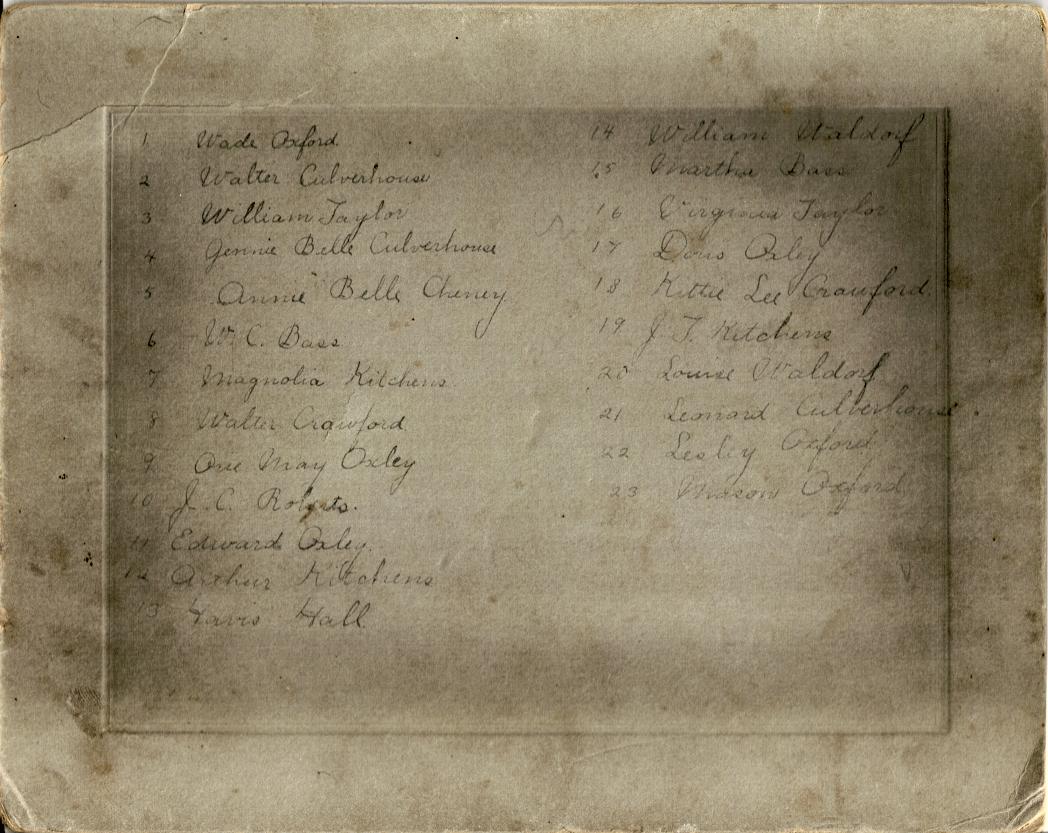 1 Wade Oxford
2 Walter Culverhouse
3 William Taylor
4 Jennie Belle Culverhouse
5 Annie Belle Cheney
6 W. C. Bass
7 Magnolia Kitchens
8 Walter Crawford
9 One May Oxley
10 J. C. Roberts.
11 Edward Oxley
12 Arthur Kitchens
13 Hall
14 William Waldorf
15 Martha Bass
16 Virginia Taylor
17 Doris Oxley
18 Kittie Lee Crawford
19 J. T. Kitchens
20 Louise Waldorf
21 Leonard Culverhouse.
22 Lesley Oxford
23 Mason Oxford